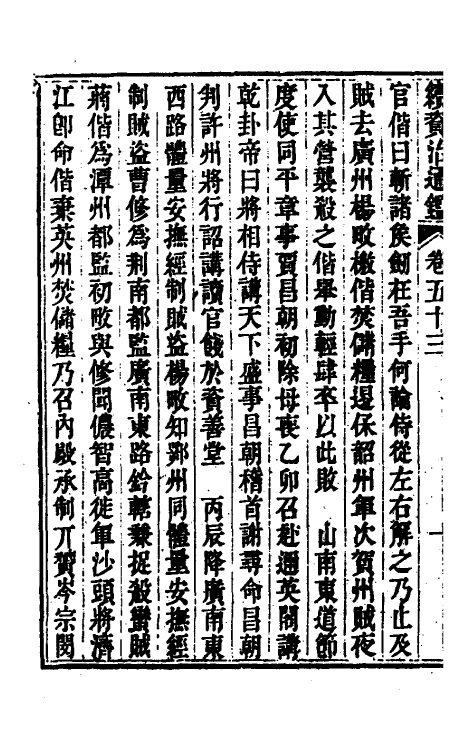 續資治通鑑 卷五十三
官偕曰斬諸侯劒在吾手何論侍從左右解之乃止及
賊去廣州楊畋檄偕焚儲糧退保韶州軍次賀州賊夜
入其營襲殺之偕舉動輕肆卒以此敗 山南東道節
度使同平章事賈昌朝初除母喪乙卯召赴邇英閣講
乾卦帝曰將相侍講天下盛事昌朝稽首謝尋命昌朝
判許州將行詔講讀官餞於資善堂 丙辰降廣南東
西路體量安撫經制賊盜楊畋知鄂州同體量安撫經
制賊盜曹修爲荆南都監廣南東路鈐轄兼捉殺蠻賊
蔣偕爲潭州都監初畋與修聞儂智高徙軍沙頭將濟
江卽命偕棄英州焚儲糧乃召內殿承制亓贇岑宗閔